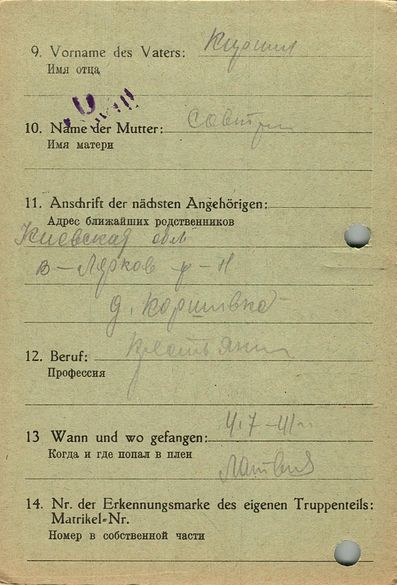 9. Vorname des Vaters:
Имя отца
10. Name der Mutter:
Имя матери
11. Anschrift der nächsten Angehörigen:
Адрес ближайших родственников
Киевская обл
р-н
д.
12. Beruf: Крестьянин
Профессия
13 Wann und wo gefangen:
Когда и где попал в плен
Латвия
14. Nr. der Erkennungsmarke des eigenen Truppenteils:
Matrikel-Nr.
Номер в собственной части